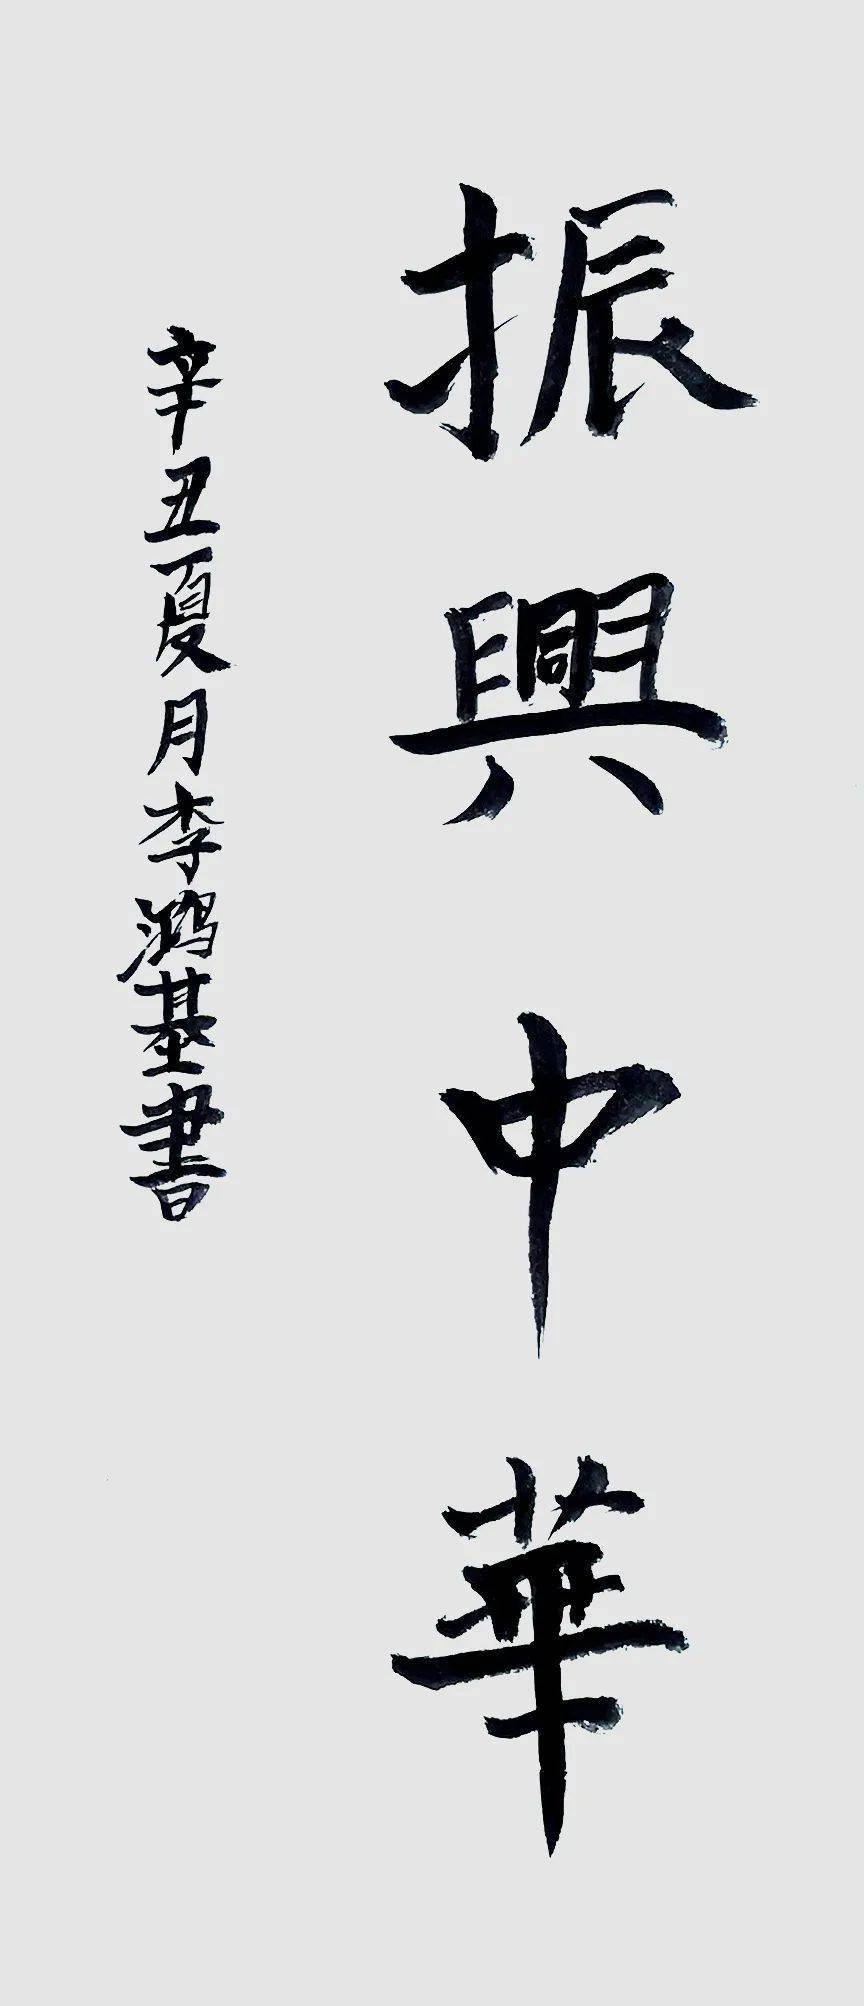 振興中華
辛丑夏月李鸿基書